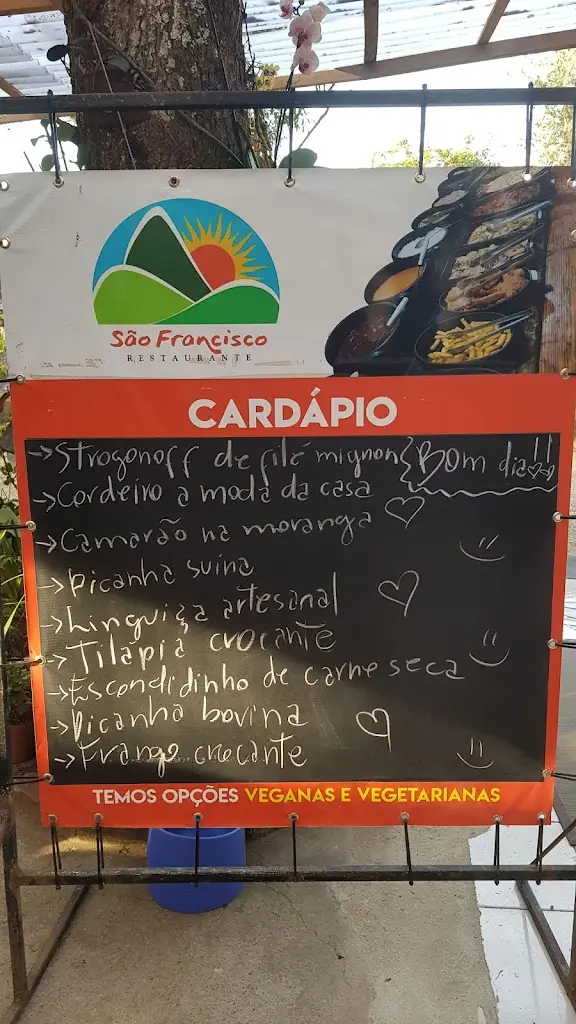 São Francisco
RESTAURANTE
CARDÁPIO
→Strogonoff de filé mignon{Bom dia!!
→Cordeiro a moda da casa
→Camarão na moranga
→Picanha suína
→Linguiça artesanal
→Tilápia crocante
→Escondidinho de carne seca
→Picanha bovina
→Frango crocante
TEMOS OPÇÕES VEGANAS E VEGETARIANAS